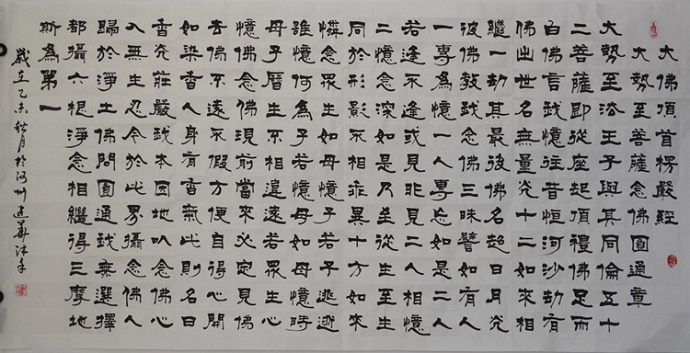 大佛頂首楞嚴經
大勢至菩薩念佛圓通章
大勢至法王子與其同倫五十
二菩薩即從座起頂禮佛足而
白佛言我憶往昔恒河沙劫有
佛出世名無量光十二如來相
繼一劫其最後佛名超日月光
彼佛教我念佛三昧譬如有人
一專為憶一人專忘如是二人
若逢不逢或見非見二人相憶
二憶念深如是乃至從生至生
同於形影不相乖異十方如來
憐念眾生如母憶子若子逃逝
雖憶何為子若憶母如母憶時
母子歷生不相違遠若眾生心
憶佛念佛現前當來必定見佛
去佛不遠不假方便自得心開
如染香人身有香氣此則名曰
香光莊嚴我本因地以念佛心
入無生忍今於此界攝念佛人
歸於淨土佛問圓通我無選擇
都攝六根淨念相繼得三摩地
斯為第一
歲在乙未秋月於河州建華沐手